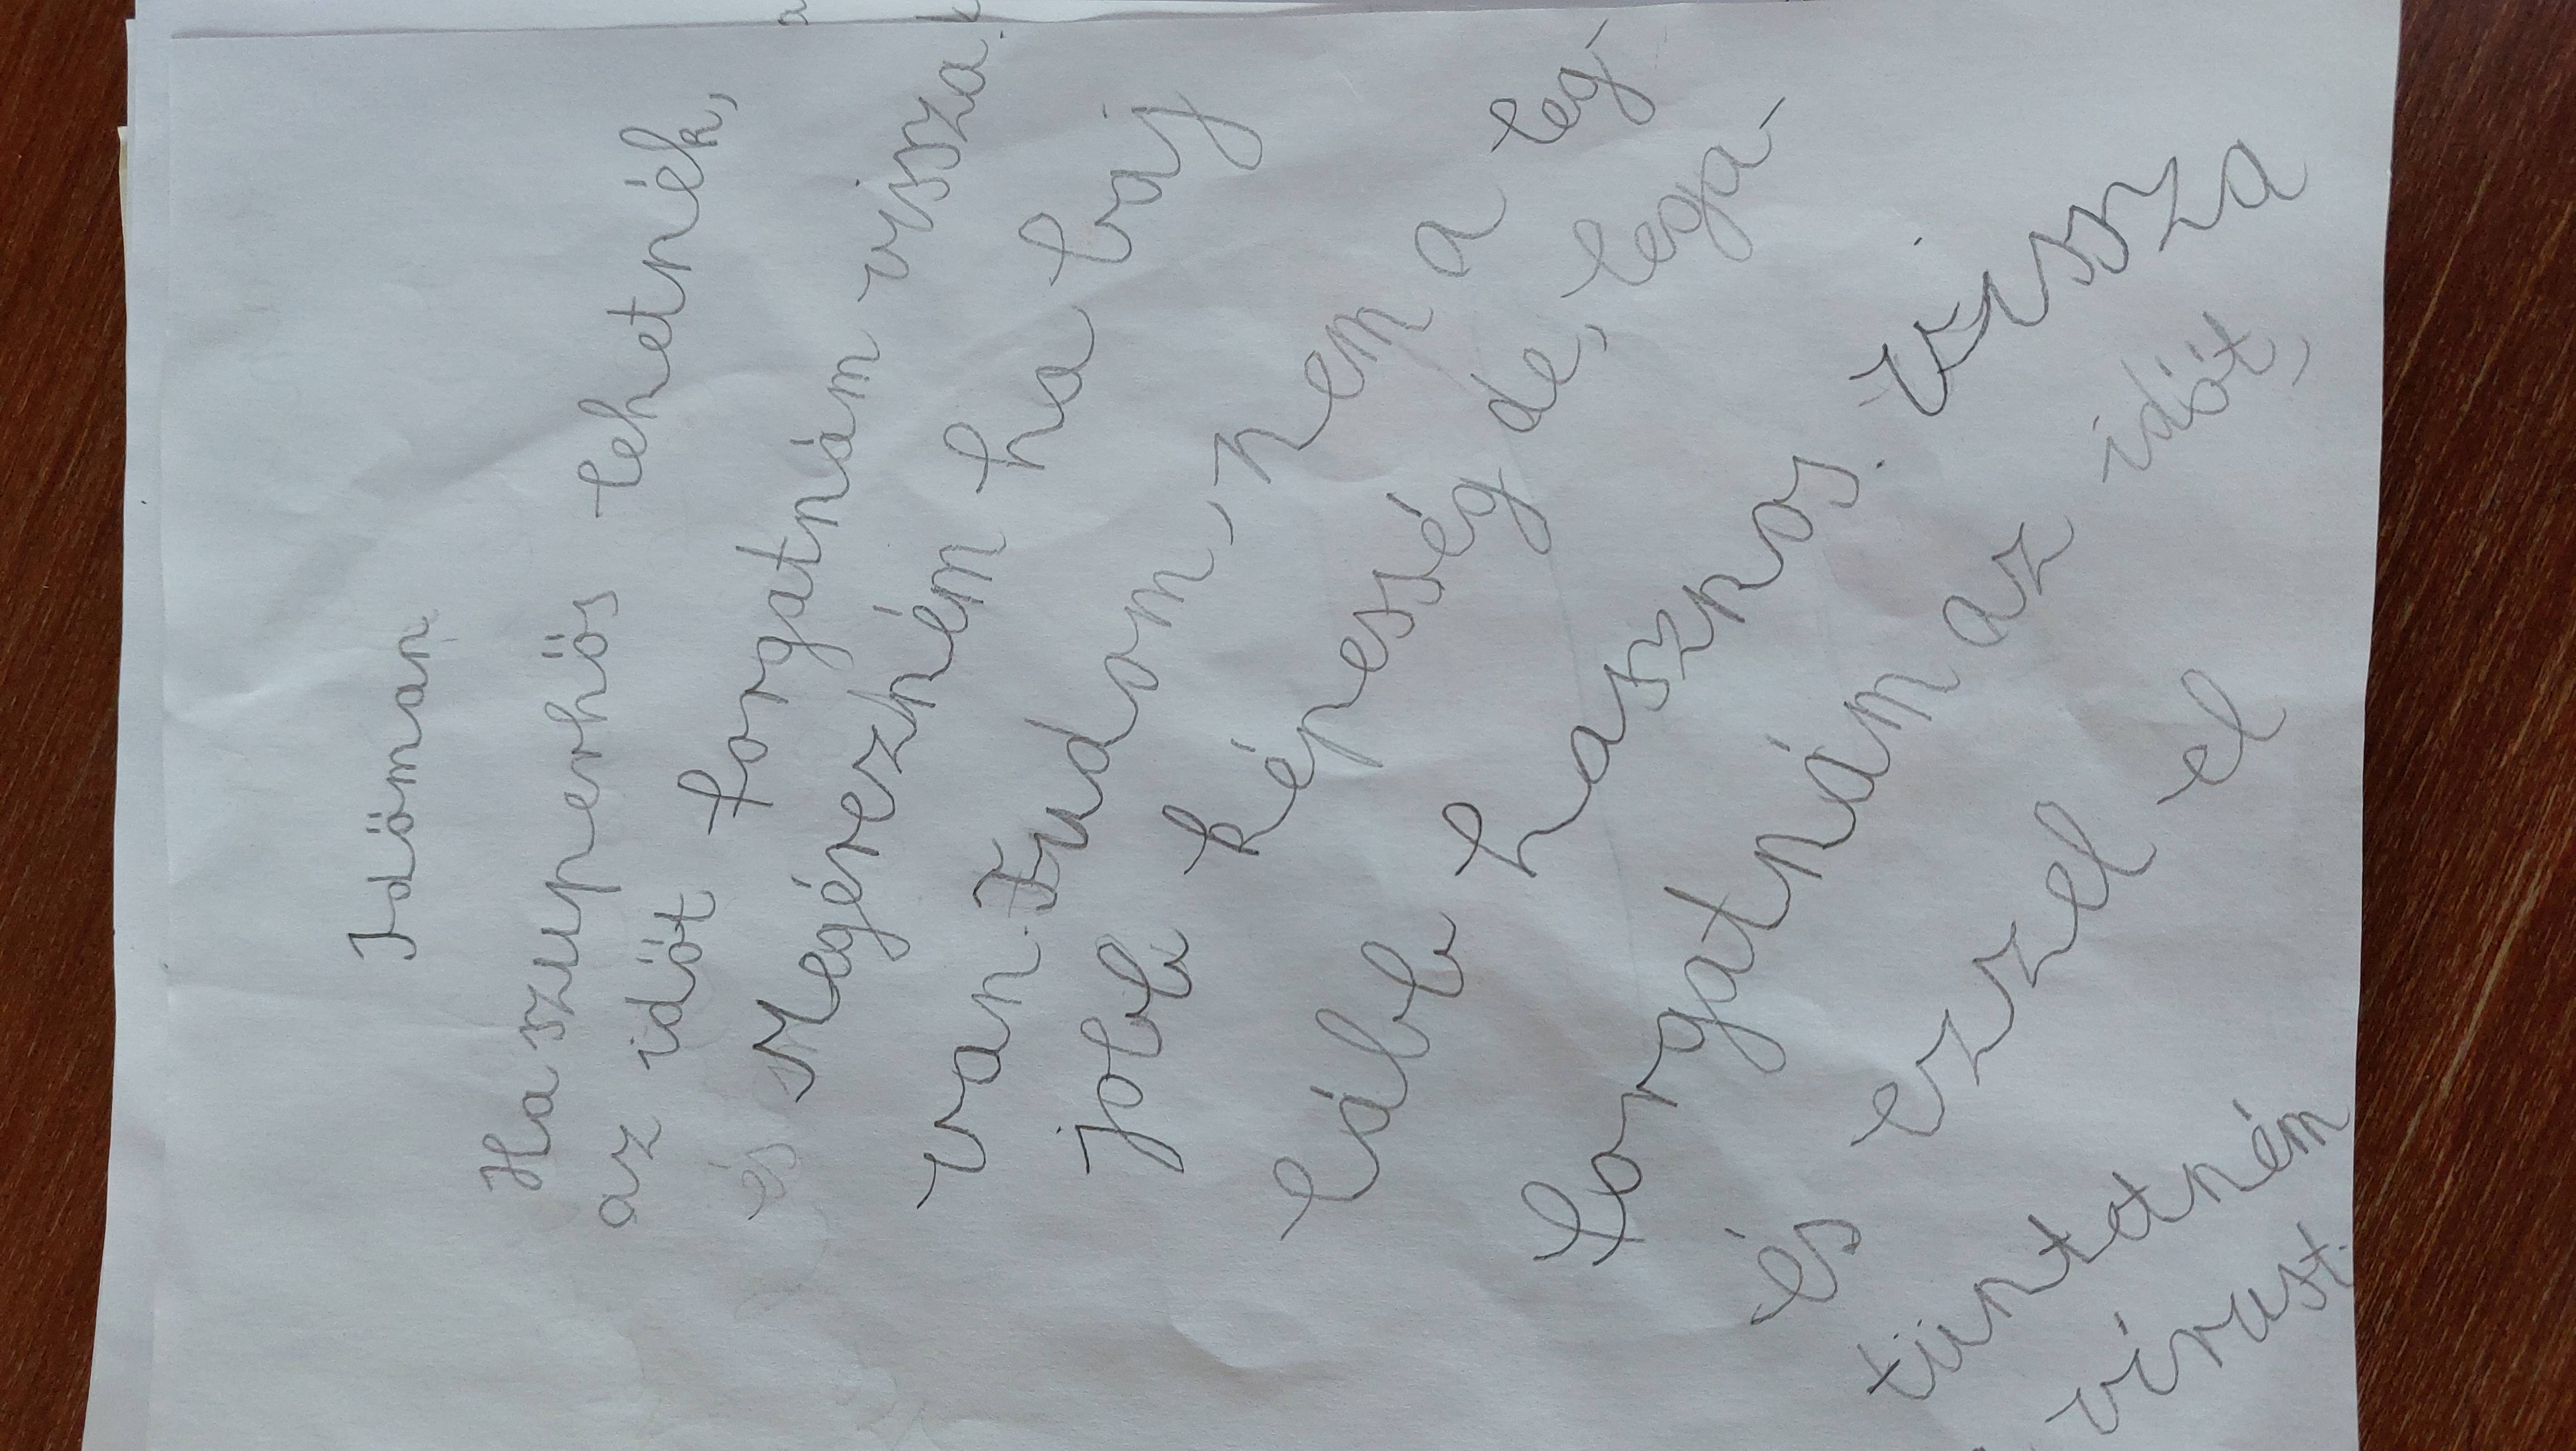 Időman
Ha szuperhős lehetnék,
az időt forgatnám vissza.
és Megérezném ha baj
van. Tudom, nem a leg-
jobb képesség de, lega-
lább hasznos. Vissza
forgatnám az időt,
és ezzel el
tüntetném
vírust.